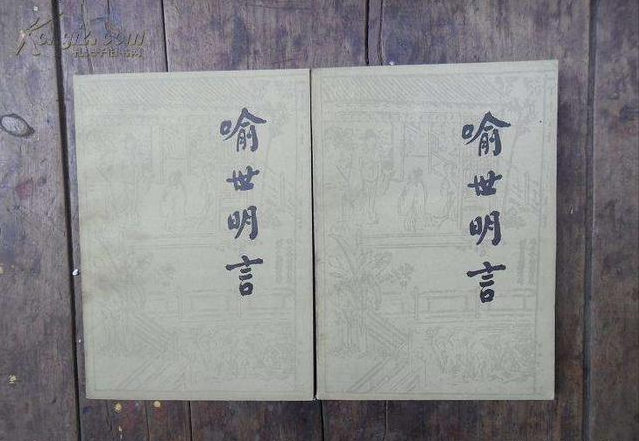 Kongfz.com
孔夫子旧书网
喻世明言
喻世明言